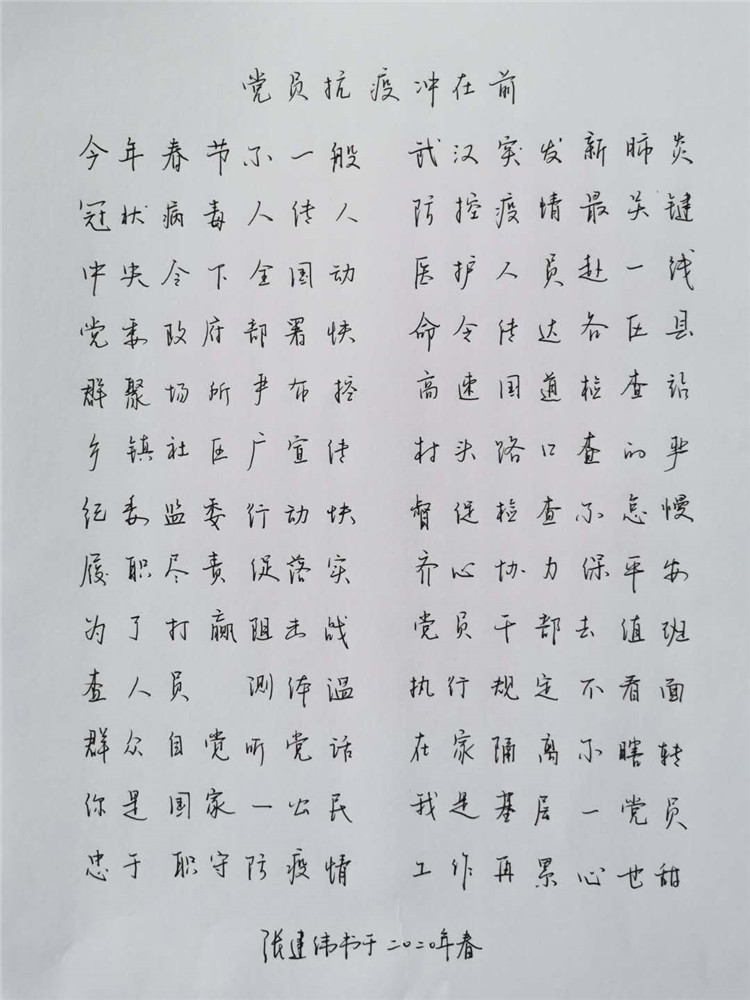 党员抗疫冲在前
今年春节不一般 武汉突发新肺炎
冠状病毒人传人 防控疫情最关键
中央令下全国动 医护人员赴一线
党委政府部署快 命令传达各区县
群聚场所严布控 高速国道检查站
乡镇社区广宣传 村头路口查的严
纪委监委行动快 督促检查不怠慢
履职尽责促落实 齐心协力保平安
为了打赢阻击战 党员干部去值班
查人员 测体温 执行规定不看面
群众自觉听党话 在家隔离不瞎转
你是国家一公民 我是基层一党员
忠于职守防疫情 工作再累心也甜
张建伟书于二〇二〇年春